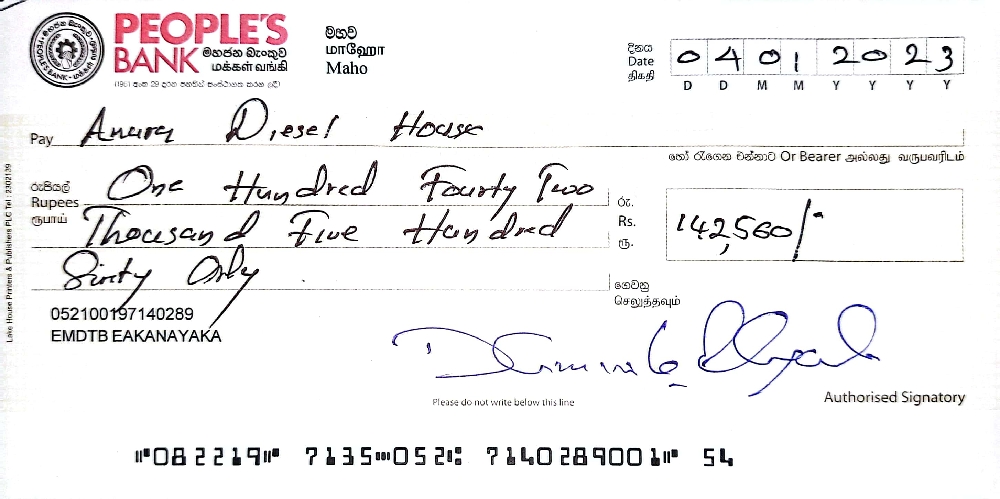 PEOPLE'S
BANK මහජන බැංකුව
மக்கள் வங்கி
(1961 අංක 29 දරන පනතින් සංස්ථාගත කරන ලදී)
මහව
மாஹோ
Maho
දිනය
Date
திகதி
0 4 0 1 2 0 2 3
D D M M Y Y Y Y
Pay Anura Diesel House
හෝ රැගෙන එන්නාට Or Bearer அல்லது வருபவரிடம்
රුපියල්
Rupees
ரூபாய்
One Hundred Fourty Two
Thousand Five Hundred
Sixty Only
රු.
Rs.
ரூ.
142,560/-
ගෙවනු
செலுத்தவும்
052100197140289
EMDTB EAKANAYAKA
Please do not write below this line
Authorised Signatory
Lake House Printers & Publishers PLC Tel : 2302139
⑈082219⑈ 7135⑉052⑆ 7140289001⑈ 54